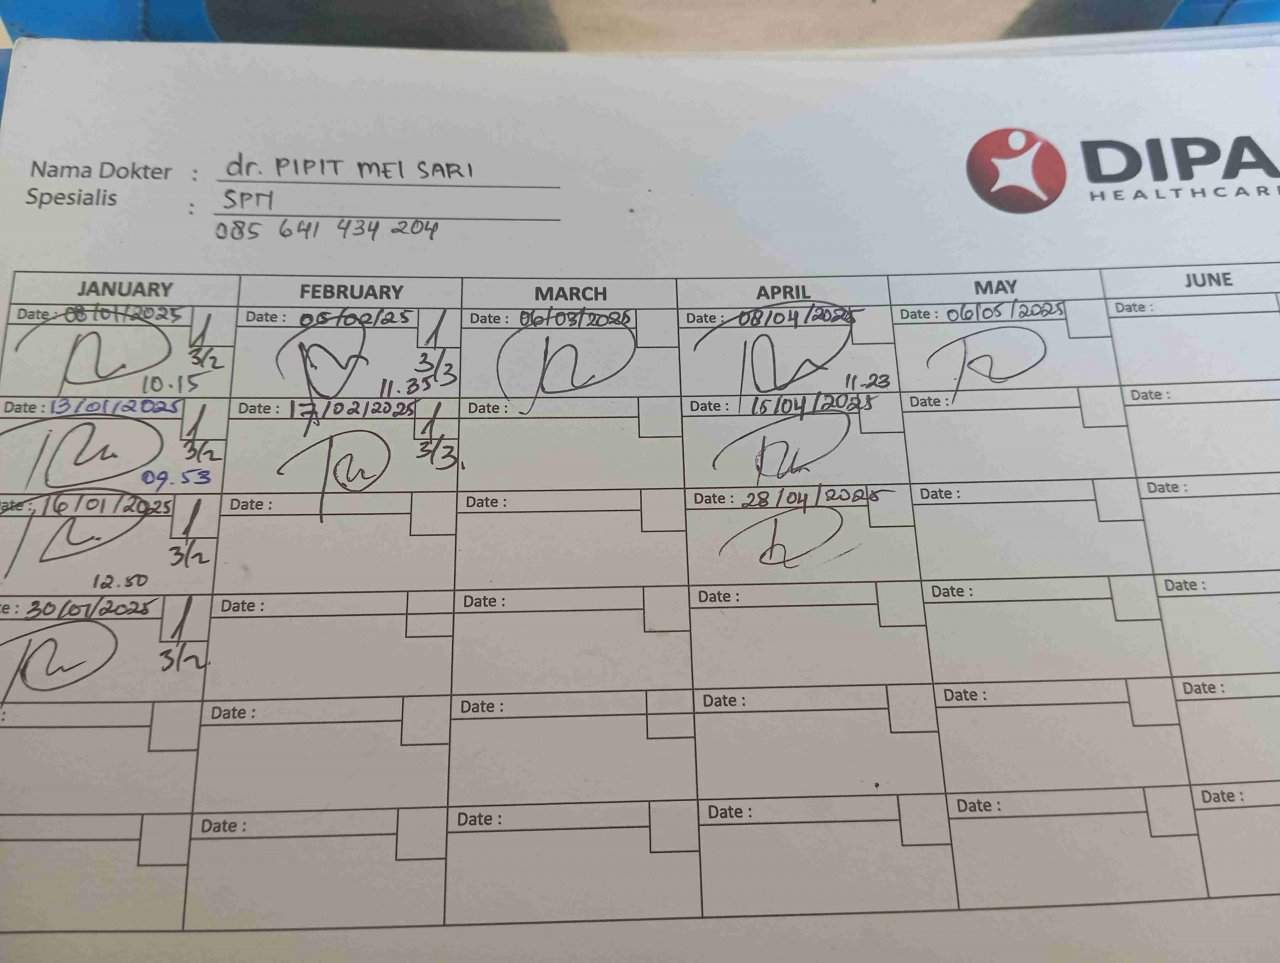 Nama Dokter : dr. PIPIT MEI SARI
Spesialis : SPTH
085 641 434 204
DIPA
HEALTHCAR
JANUARY FEBRUARY MARCH APRIL MAY JUNE
Date : 08/01/2025 1 Date : 05/02/25 1 Date : 06/03/2025 Date : 08/04/2025 Date : 06/05/2025 Date :
3/2 3/3
10.15 11.35 11.23
Date : 13/01/2025 1 Date : 17/02/2025 1 Date : Date : 15/04/2025 Date : Date :
3/2 3/3
09.53
ate : 16/01/2025 1 Date : Date : Date : 28/04/2025 Date : Date :
3/2
12.50
e : 30/01/2025 1 Date : Date : Date : Date : Date :
3/2
: Date : Date : Date : Date : Date :
Date : Date : Date : Date : Date :